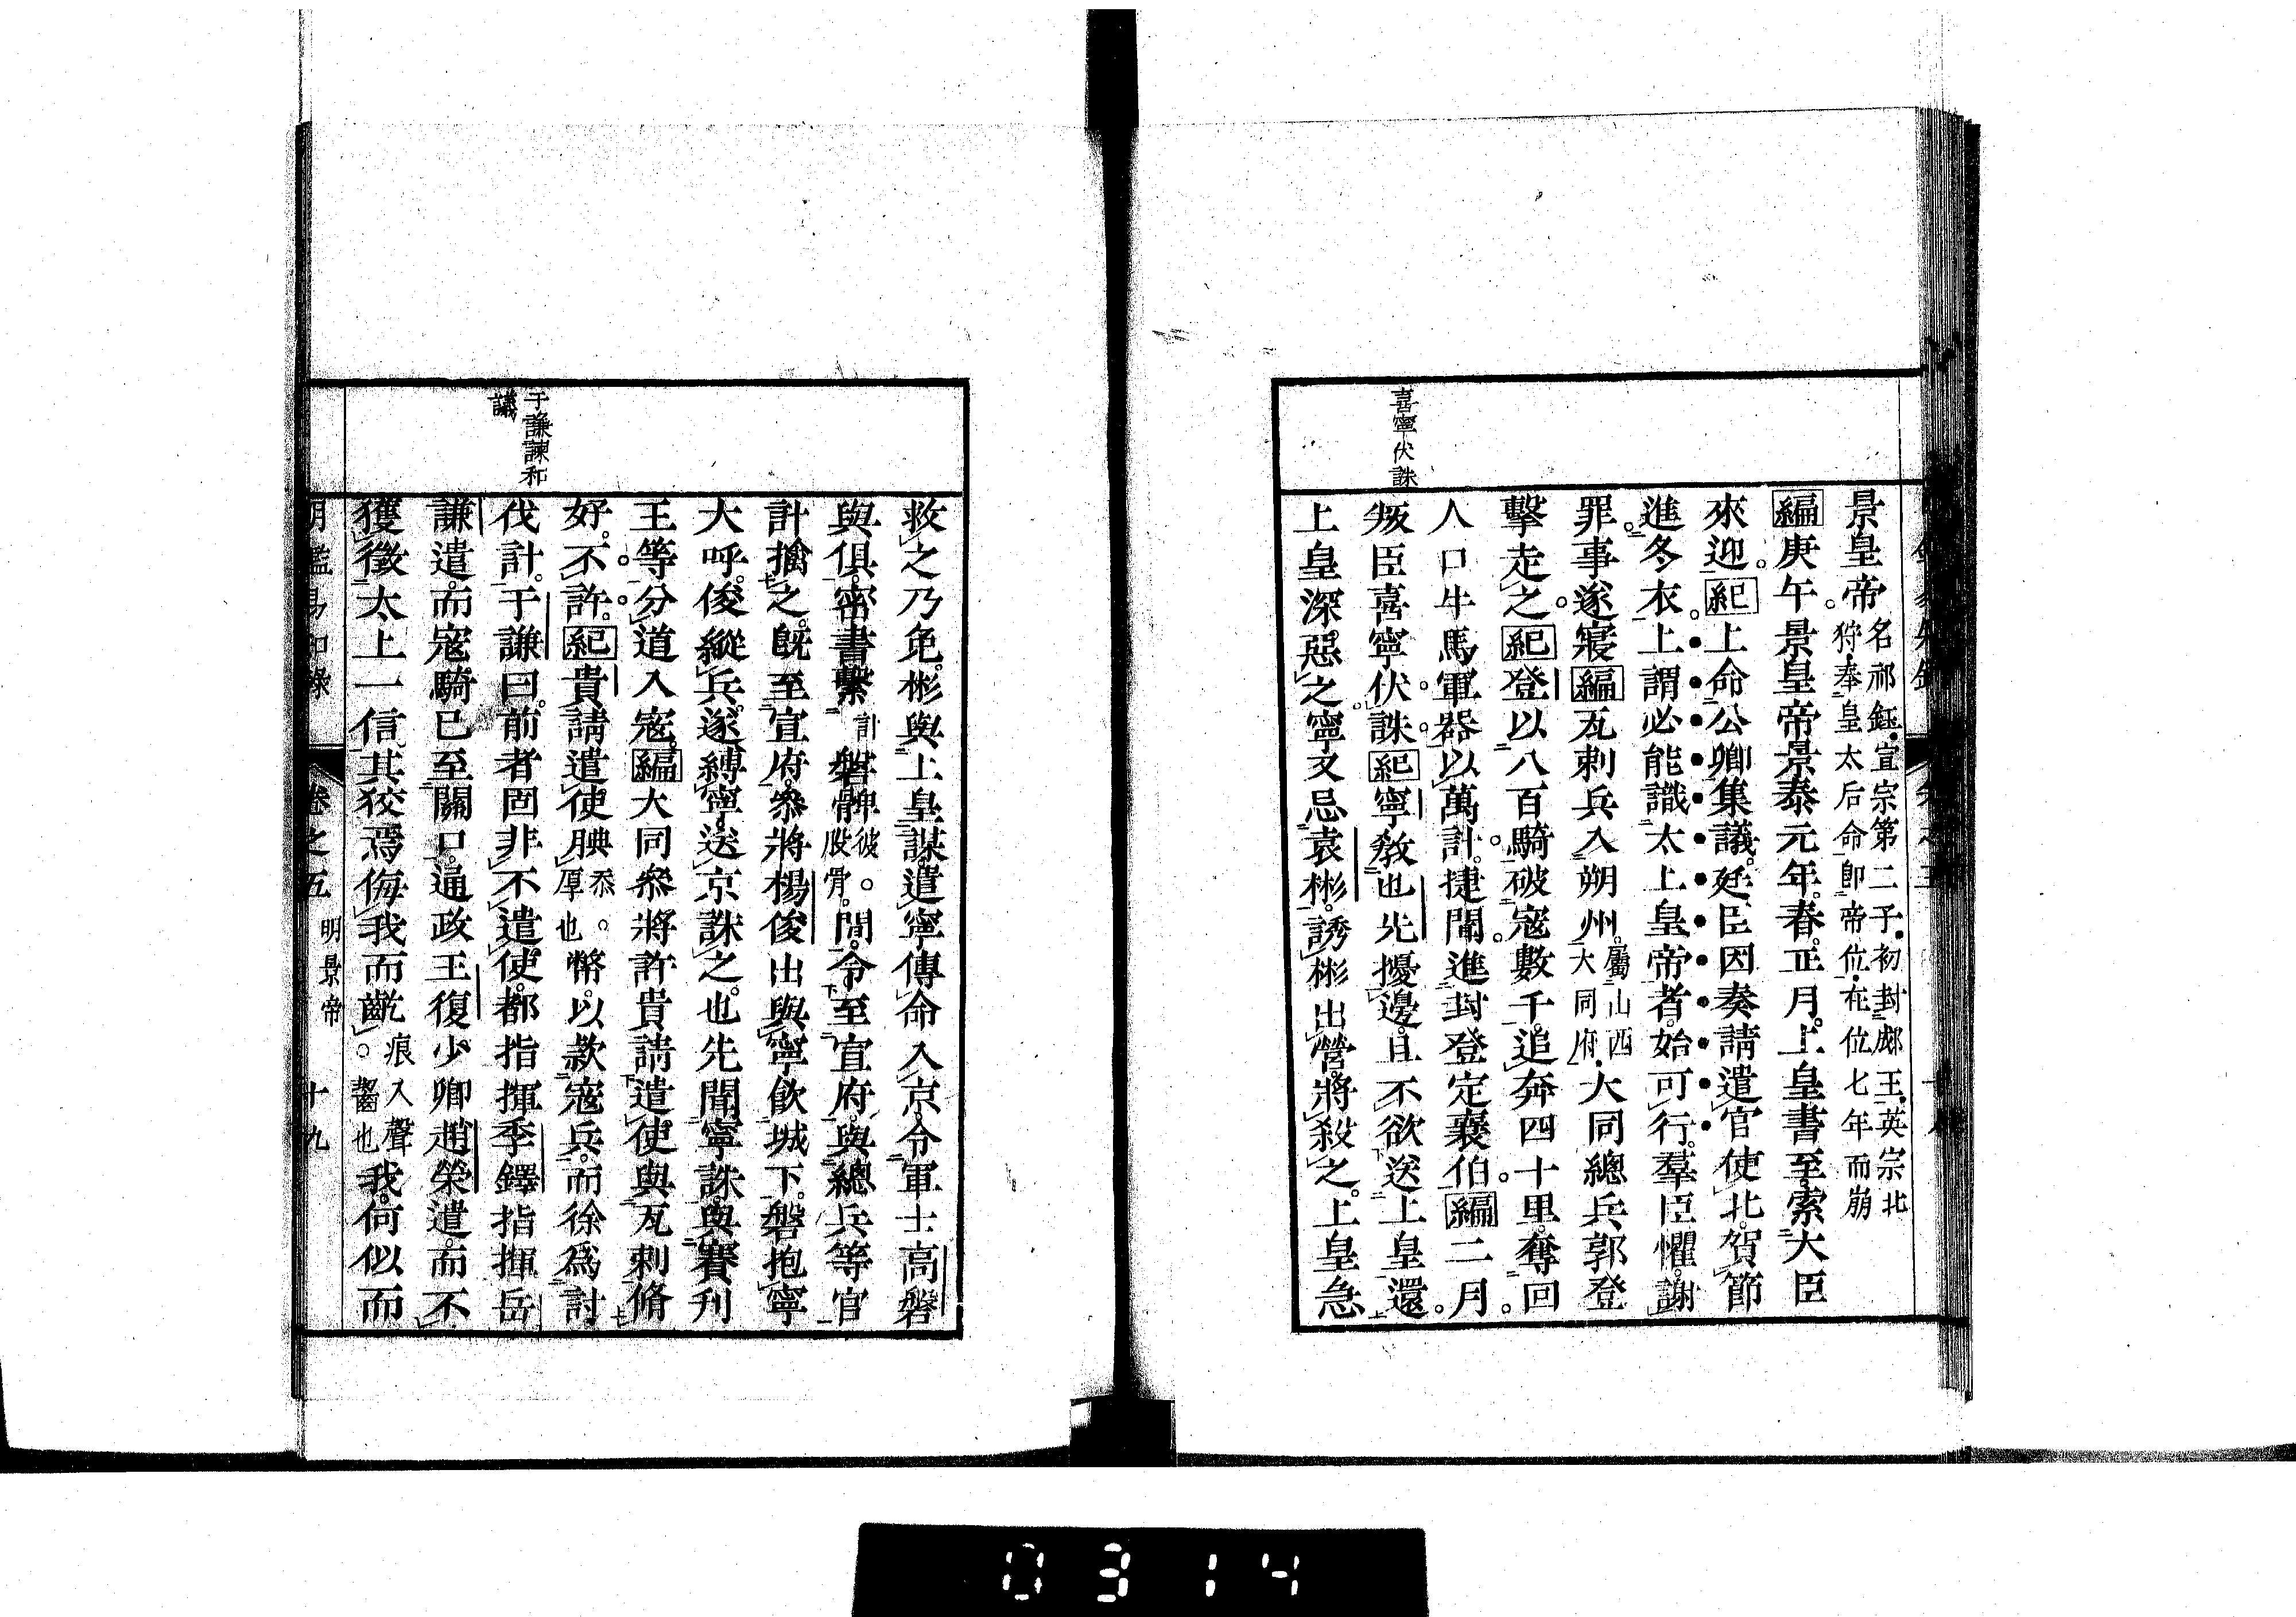 喜寧伏誅
景皇帝名祁鈺宣宗第二子初封郕王英宗北狩奉皇太后命即帝位在位七年而崩
編庚午景皇帝景泰元年春正月上皇書至索大臣
來迎紀上命公卿集議廷臣因奏請遣官使北賀節
進冬衣上謂必能識太上皇帝者始可行羣臣懼謝
罪事遂寢編瓦剌兵入朔州屬山西大同府大同總兵郭登
擊走之紀登以八百騎破寇數千追奔四十里奪回
人口牛馬軍器以萬計捷聞進封登定襄伯編二月
叛臣喜寧伏誅紀寧教也先擾邊且不欲送上皇還
上皇深惡之寧又忌袁彬誘彬出營將殺之上皇急
于謙諫和議
救之乃免彬與上皇謀遣寧傳命入京令軍士高磐
與俱密書繫計磐髀彼股骨間令至宣府與總兵等官
計擒之既至宣府參將楊俊出與寧飲城下磐抱寧
大呼俊縱兵遂縛寧送京誅之也先聞寧誅與賽刊
王等分道入寇編大同參將許貴請遣使與瓦剌脩
好不許紀貴請遣使腆忝厚也幣以款寇兵而徐為討
伐計于謙曰前者固非不遣使都指揮季鐸指揮岳
謙遣而寇騎已至關口通政王復少卿趙榮遣而不
獲徵太上一信其狡焉侮我而齕痕入聲齧也我何似而
明鑑易知錄 卷之五 明景帝 十九
0314